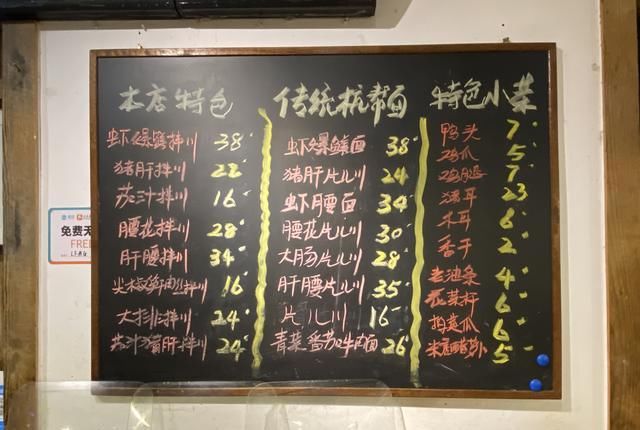 本店特色
虾爆鳝拌川 38
猪肝拌川 22
茄汁拌川 16
腰花拌川 28
肝腰拌川 34
尖椒鲜肉丝拌川 16
大排拌川 24
茄汁猪肝拌川 24
传统杭帮面
虾爆鳝面 38
猪肝片儿川 24
虾腰面 34
腰花片儿川 30
大肠片儿川 28
肝腰片儿川 35
片儿川 16
青菜番茄牛肉面 26
特色小菜
鸭头 7
鸡爪 5
鸡腿 7
猪耳 23
木耳 6
香干 2
老油条 4
花菜杆 6
拍黄瓜 6
米醋酸萝卜 5
免费无
FREE